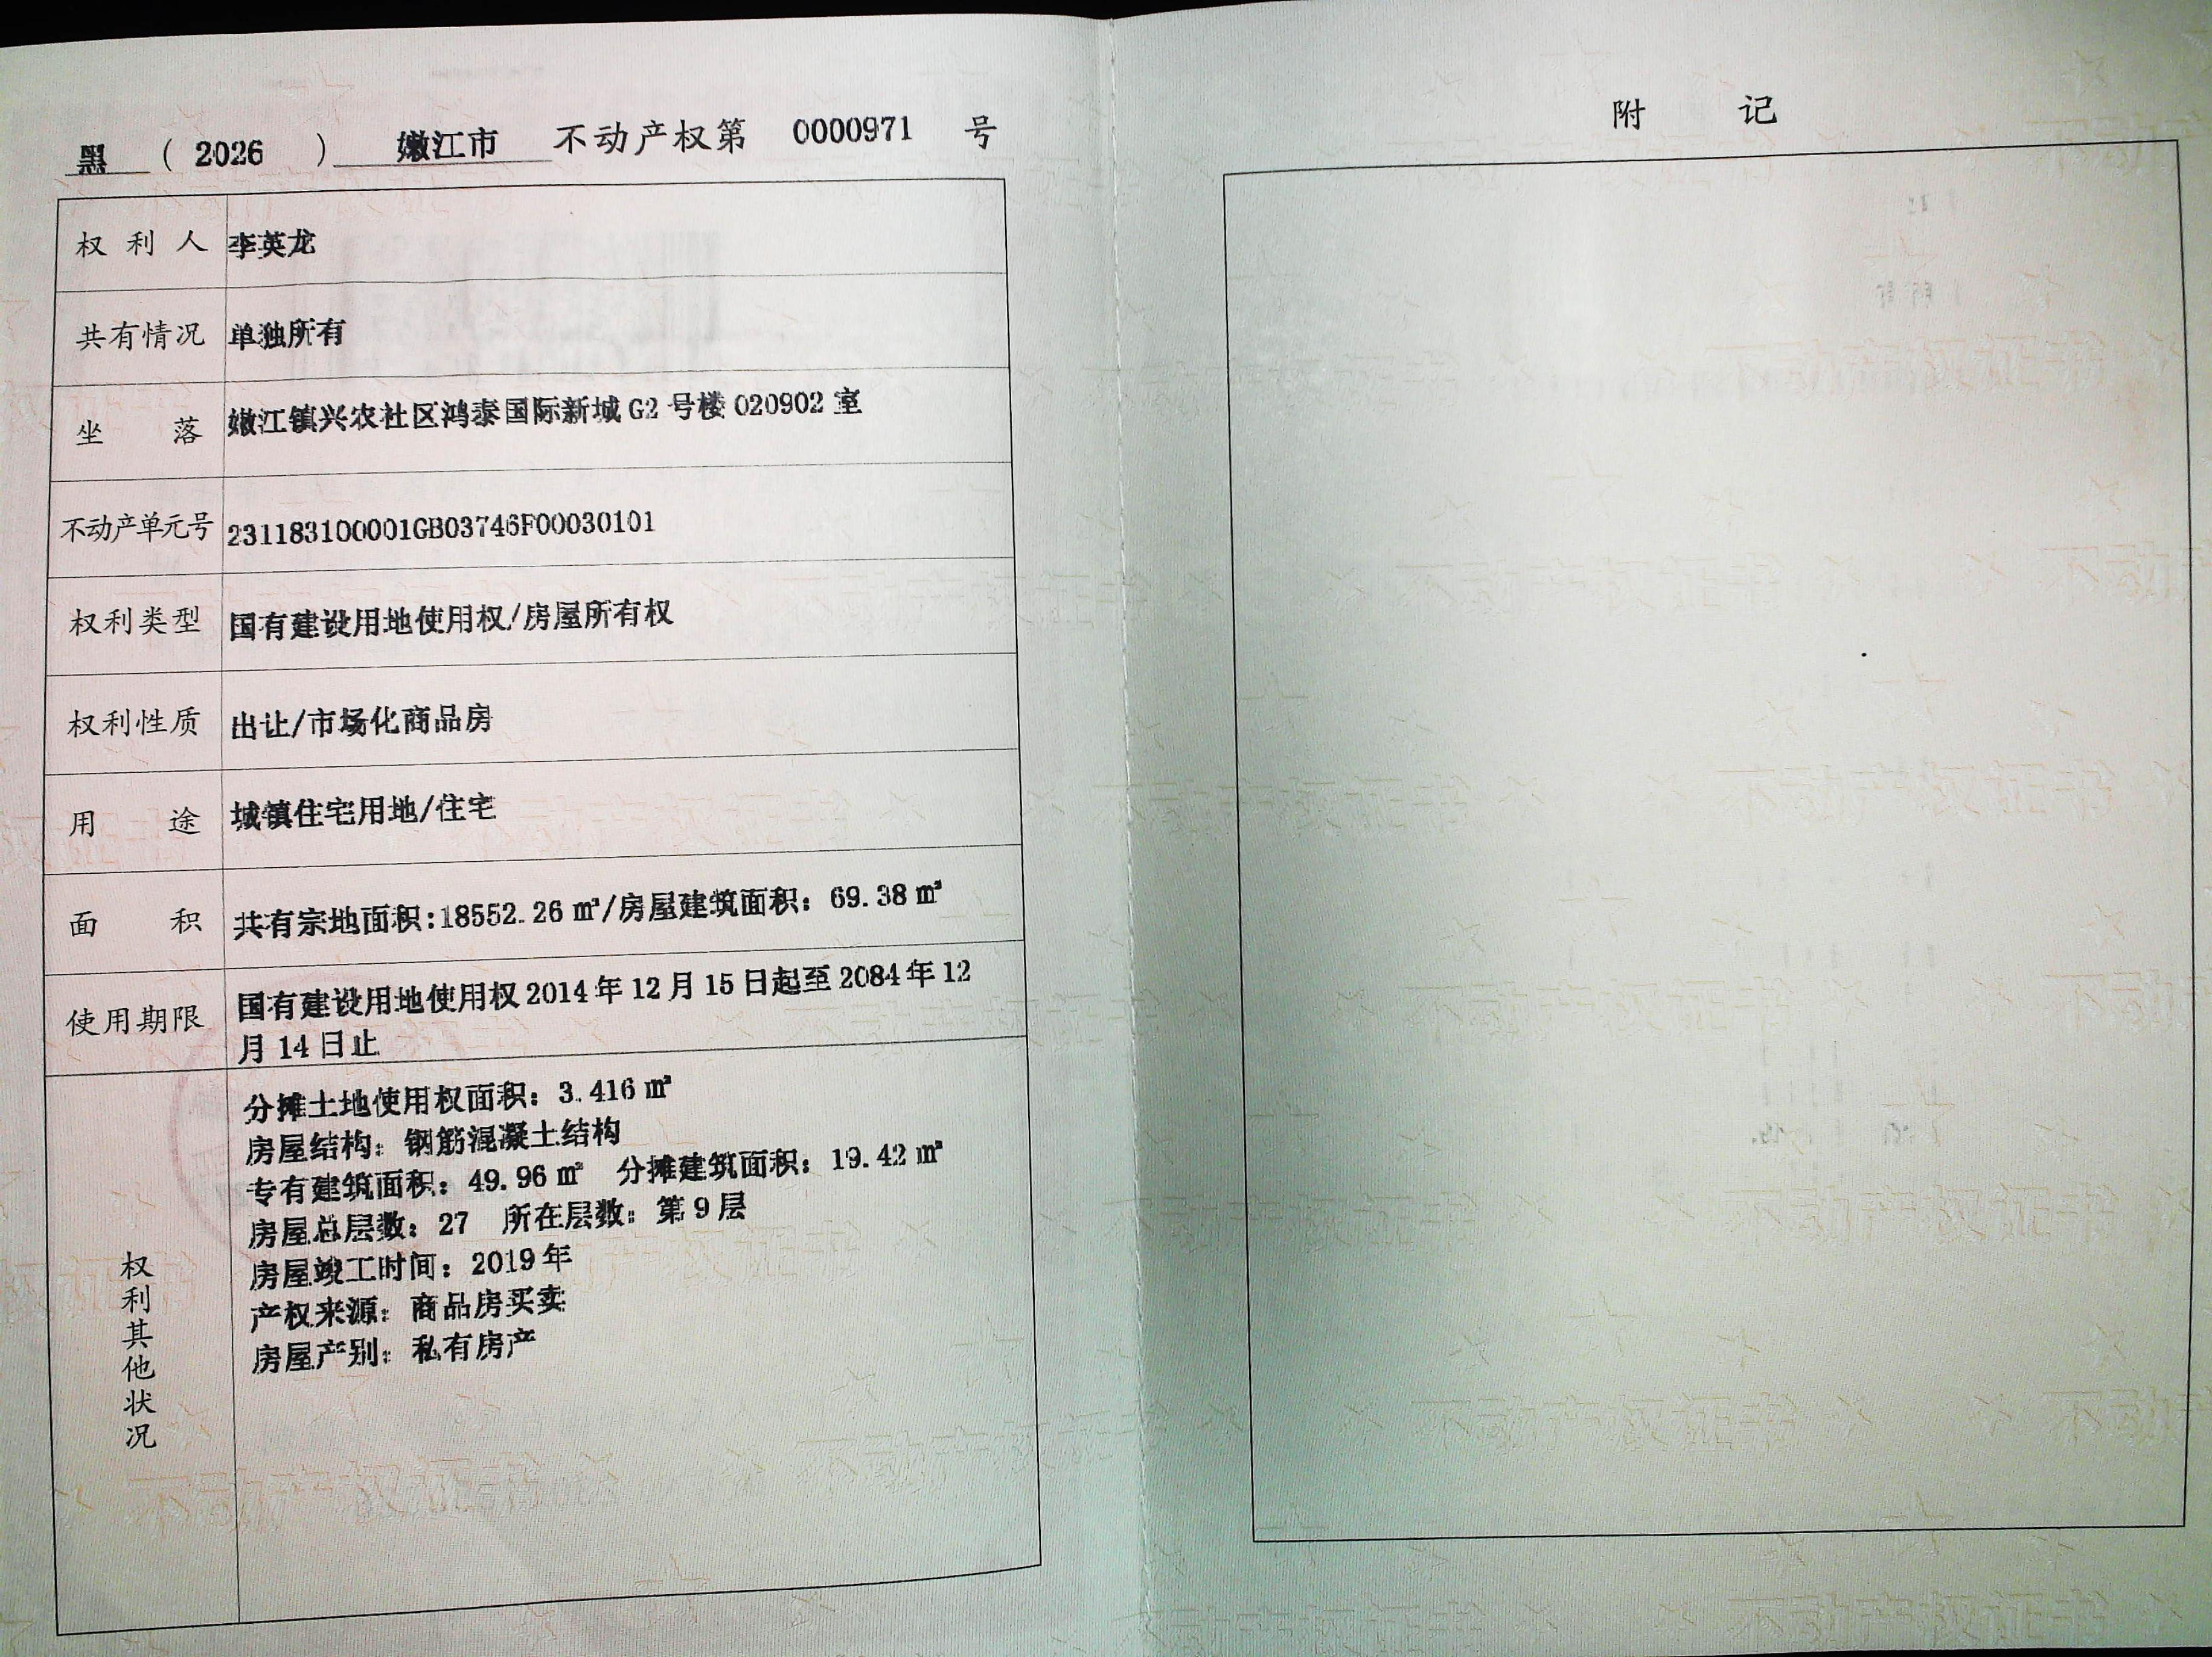 黑 （ 2026 ） 嫩江市 不动产权第 0000971 号
权利人 李英龙
共有情况 单独所有
坐落 嫩江镇兴农社区鸿泰国际新城 G2 号楼 020902 室
不动产单元号 231183100001GB03746F00030101
权利类型 国有建设用地使用权/房屋所有权
权利性质 出让/市场化商品房
用途 城镇住宅用地/住宅
面积 共有宗地面积:18552.26 ㎡/房屋建筑面积：69.38 ㎡
使用期限 国有建设用地使用权 2014 年 12 月 15 日起至 2084 年 12
月 14 日止
权利其他状况
分摊土地使用权面积：3.416 ㎡
房屋结构：钢筋混凝土结构
专有建筑面积：49.96 ㎡ 分摊建筑面积：19.42 ㎡
房屋总层数：27 所在层数：第 9 层
房屋竣工时间：2019 年
产权来源：商品房买卖
房屋产别：私有房产
附 记